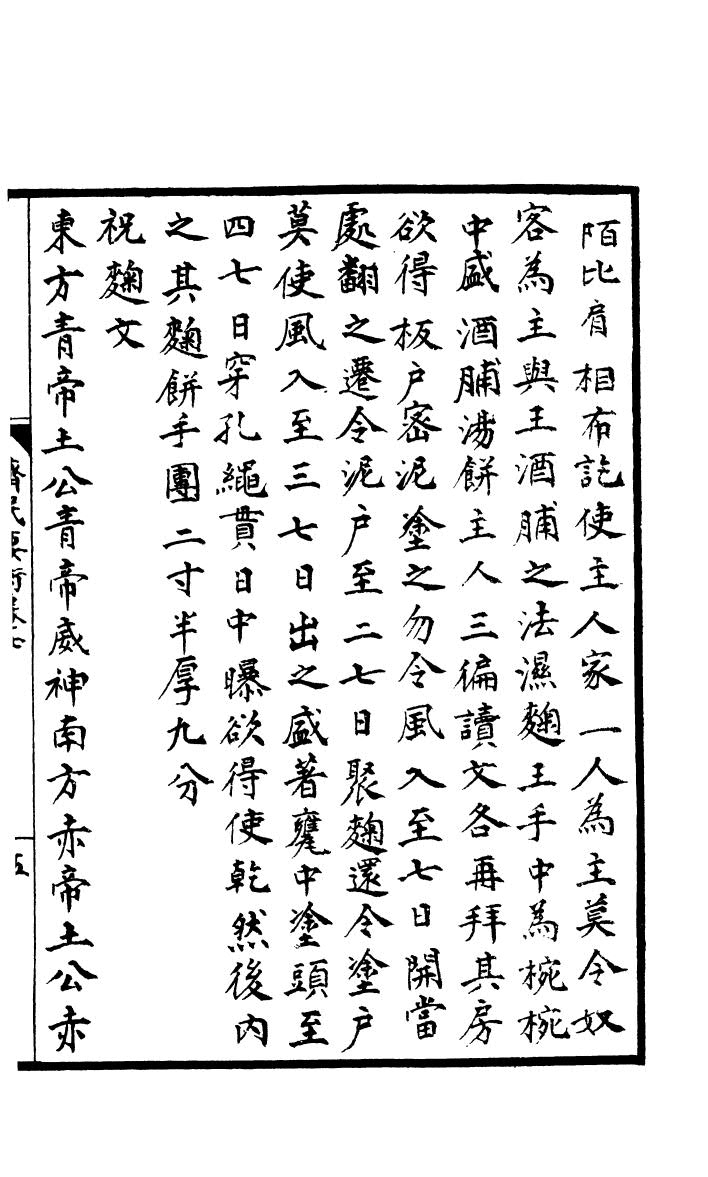 陌比肩相布訖使主人家一人為主莫令奴
客為主與王酒脯之法濕麴王手中為椀椀
中盛酒脯湯餅主人三徧讀文各再拜其房
欲得板戶密泥塗之勿令風入至七日開當
處翻之還令泥戶至二七日聚麴還令塗戶
莫使風入至三七日出之盛著甕中塗頭至
四七日穿孔繩貫日中曝欲得使乾然後內
之其麴餅手團二寸半厚九分
祝麴文
東方青帝土公青帝威神南方赤帝土公赤
齊民要術卷七
五